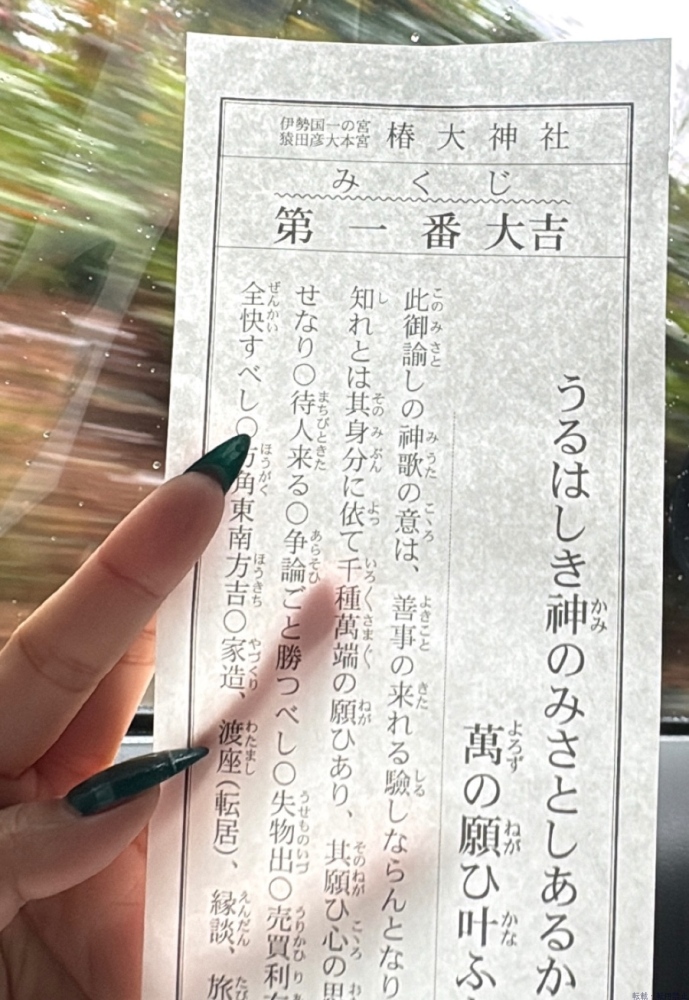 伊勢国一の宮
猿田彦大本宮
椿大神社
みくじ
第一番 大吉
うるはしき神のみさとしあるか
萬の願ひ叶ふ
此御諭しの神歌の意は、善事の来れる驗しならんとなり
知れとは其身分に依て千種萬端の願ひあり、其願ひ心の思
せなり〇待人来る〇争論ごと勝つべし〇失物出〇売買利
全快すべし〇方角東南方吉〇家造、渡座(転居)、縁談、旅